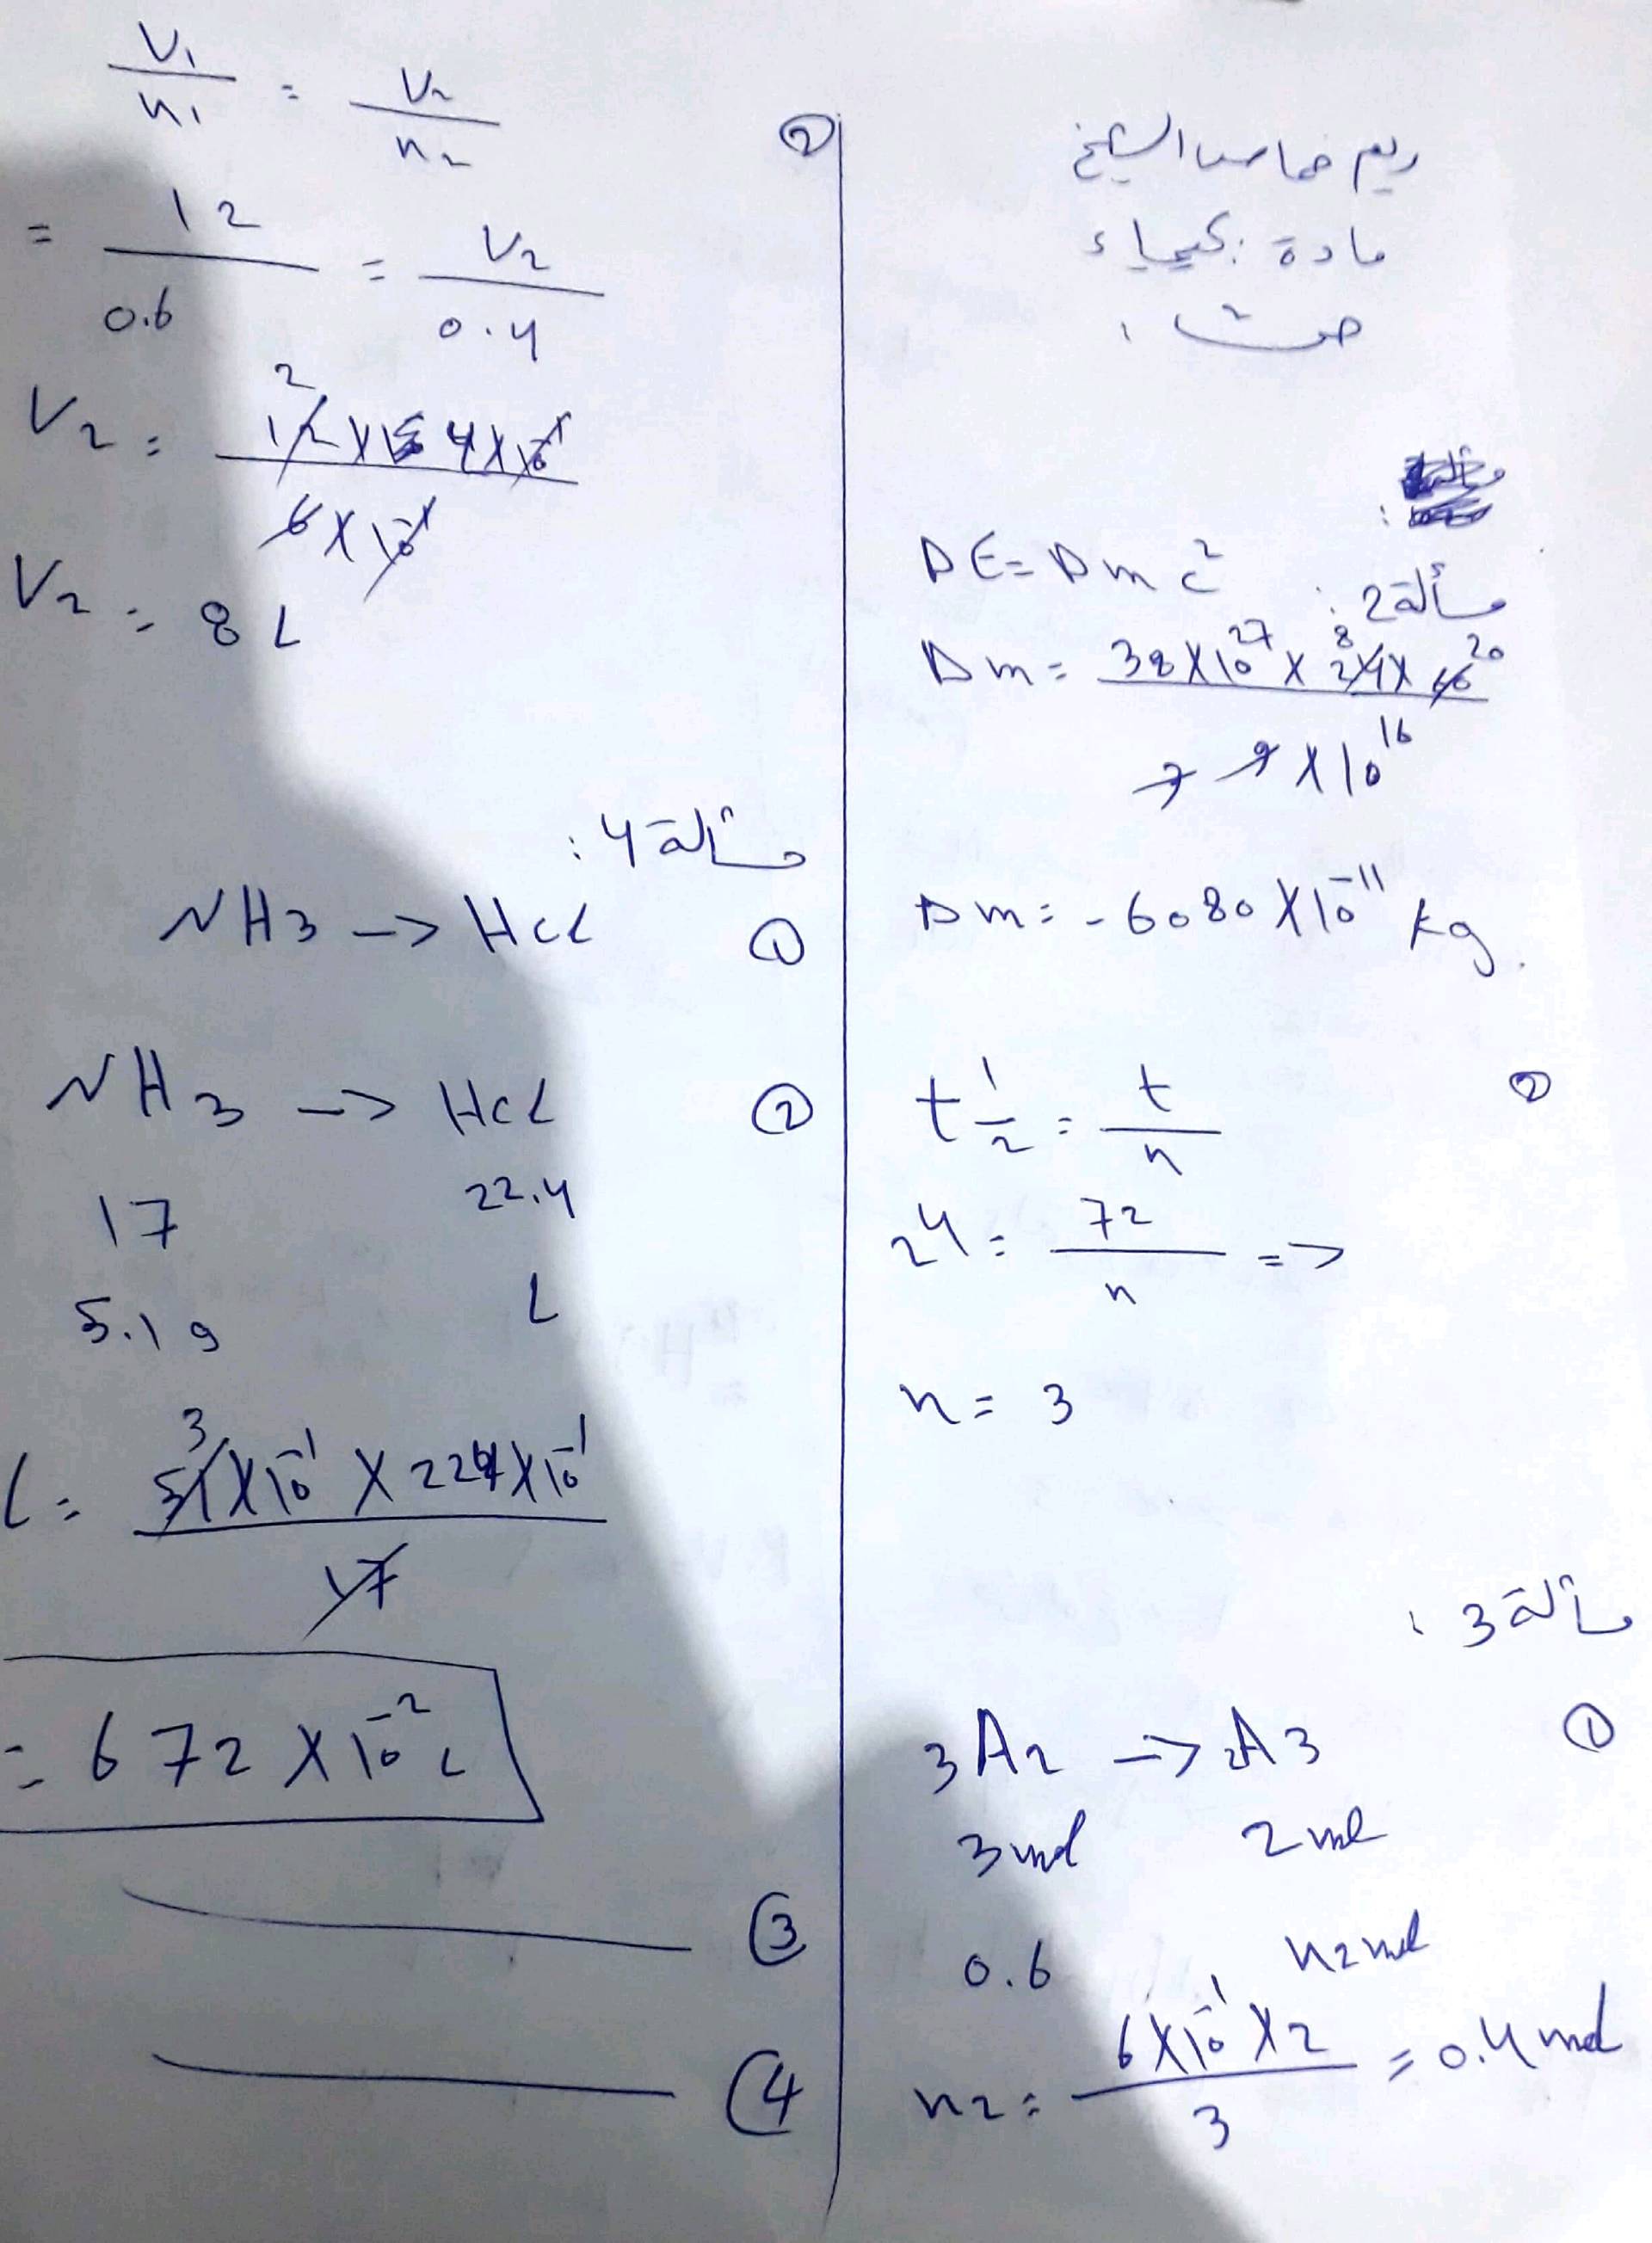 ريم
مادة : كيمياء
مسألة 2 :
DE = Dm c²
Dm = 38 X 10²⁷ X 8 24 X 10²⁰ / 7 9 X 10¹⁶
Dm = - 6080 X 10⁻¹¹ kg.
②
t 1/2 = t / n
24 = 72 / n =>
n = 3
مسألة 3 :
①
3A2 -> 2A3
3 mol 2 mol
0.6 n2 mol
n2 = 6 X 10⁻¹ X 2 / 3 = 0.4 mol
②
V1 / n1 = V2 / n2
= 12 / 0.6 = V2 / 0.4
V2 = 2 12 X 4 X 10⁻¹ / 6 X 10⁻¹
V2 = 8 L
مسألة 4 :
NH3 -> HCL ①
NH3 -> HCL ②
17 22.4
5.1 g L
L = 3 51 X 10⁻¹ X 224 X 10⁻¹ / 17
= 672 X 10⁻² L
③
④